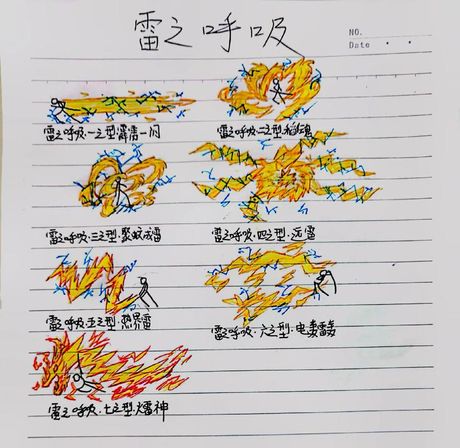 雷之呼吸
NO.
Date
雷之呼吸·一之型·霹雳一闪
雷之呼吸·二之型·稻魂
雷之呼吸·三之型·聚蚊成雷
雷之呼吸·四之型·远雷
雷之呼吸·五之型·热界雷
雷之呼吸·六之型·电轰雷轰
雷之呼吸·七之型·火雷神